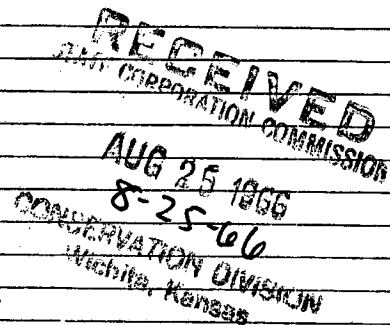 RECEIVED
STATE CORPORATION COMMISSION
AUG 25 1966
8-25-66
CONSERVATION DIVISION
Wichita, Kansas